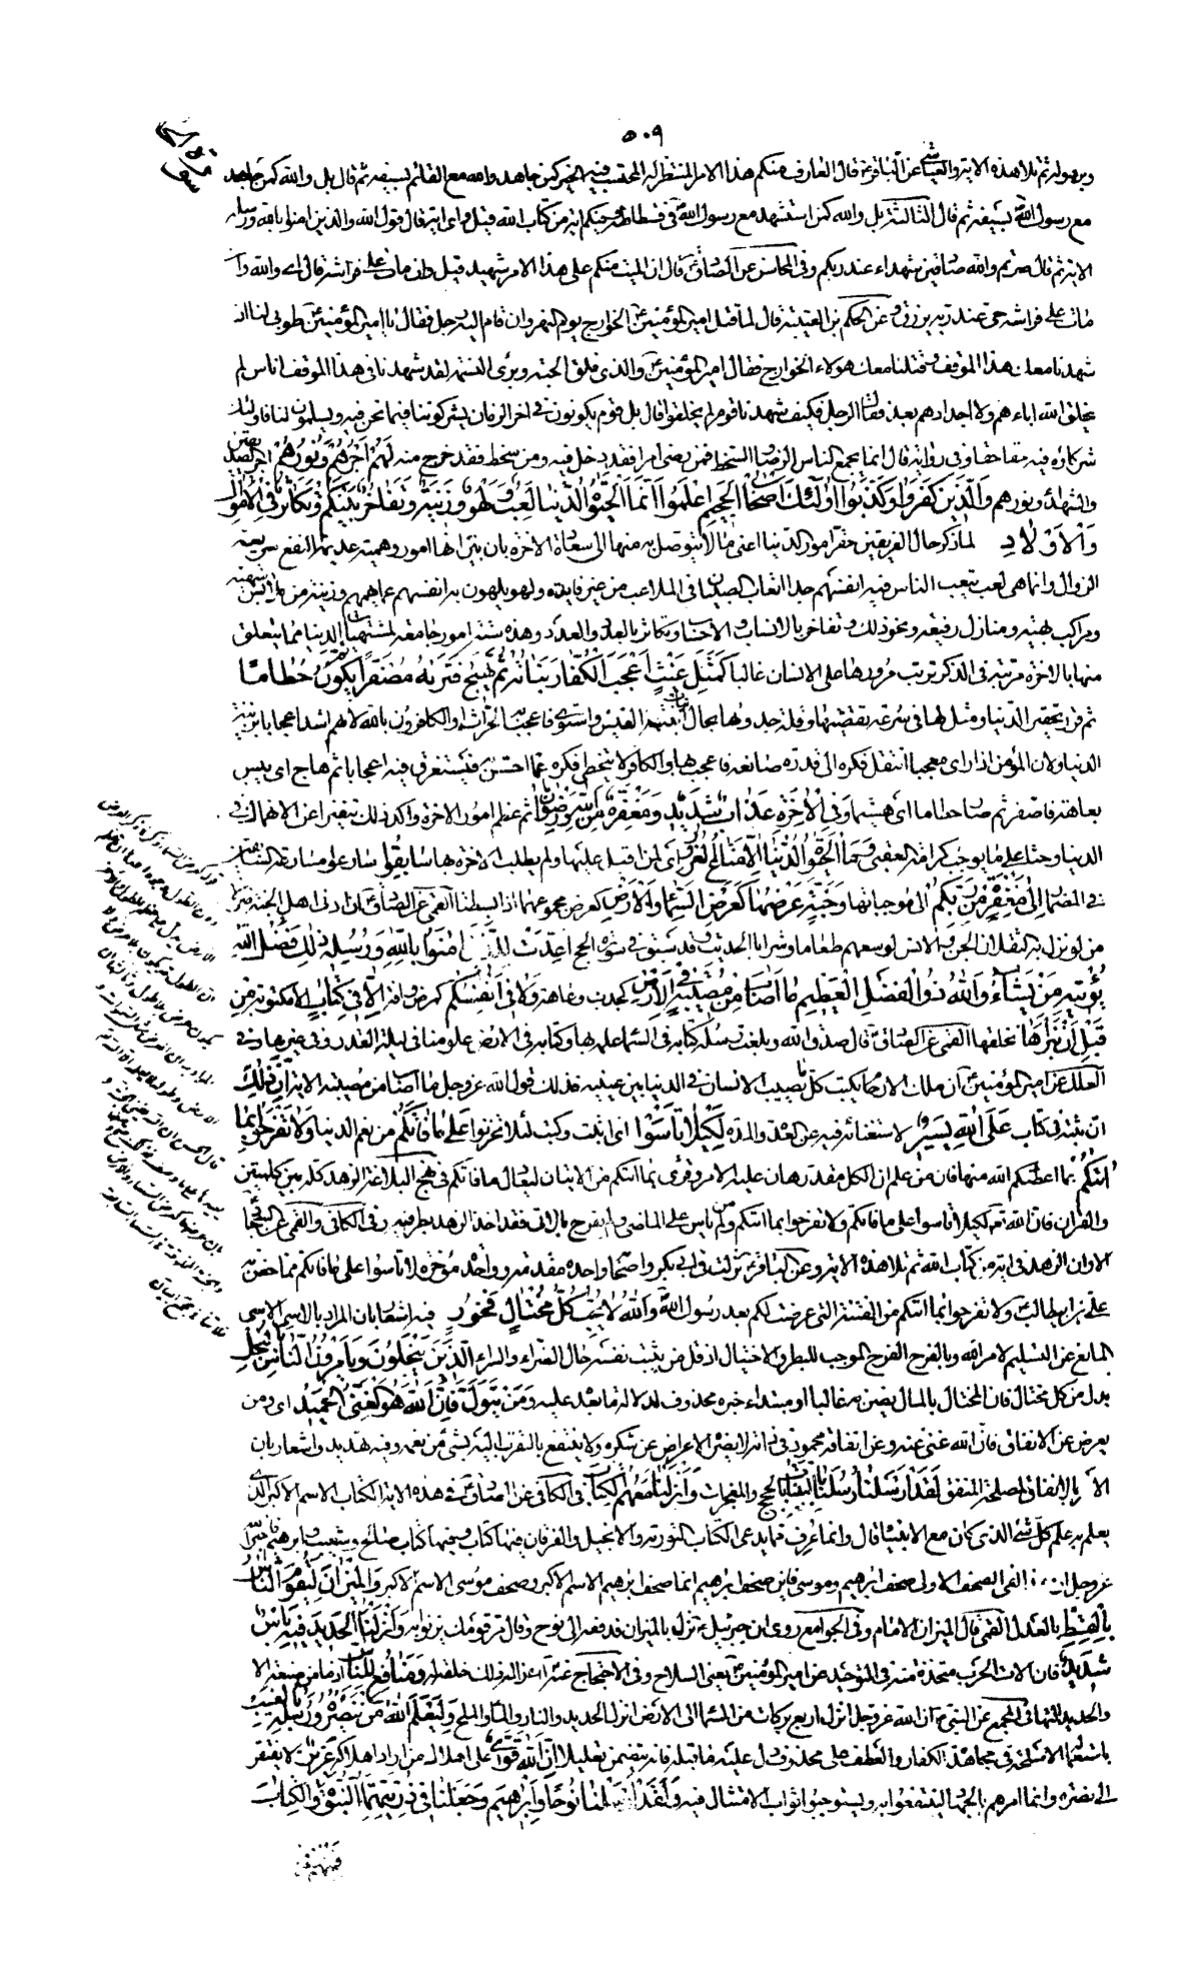 ٥٠٩
سورة الحديد
ورسوله ثم تلا هذه الاية والعياشي عن الباقر ع قال العارف منكم هذا الامر المنتظر له المحتسب فيه الخير كمن جاهد والله مع القائم بسيفه ثم قال بل والله كمن جاهد
مع رسول الله بسيفه ثم قال الثالثة بل والله كمن استشهد مع رسول الله في فسطاطه وفيكم اية من كتاب الله قيل واي اية قال قول الله والذين امنوا بالله ورسله
الاية ثم قال صرتم والله صادقين شهداء عند ربكم وفي المحاسن عن الصادق ع قال ان الميت منكم على هذا الامر شهيد قيل وان مات على فراشه قال اي والله وان
مات على فراشه حي عند ربه يرزق وعن الحكم بن العتيبة قال لما قتل امير المؤمنين ع الخوارج يوم النهروان قام اليه رجل فقال يا امير المؤمنين طوبى لنا اذ
شهدنا معك هذا الموقف وقتلنا معك هؤلاء الخوارج فقال امير المؤمنين والذي فلق الحبة وبرئ النسمة لقد شهدنا في هذا الموقف اناس لم
يخلق الله اباءهم ولا اجدادهم بعد فقال الرجل فكيف شهدنا قوم لم يخلقوا قال بل قوم يكونون في اخر الزمان يشركوننا فيما نحن فيه ويسلمون لنا فاولئك
شركاؤه فيه حقا حقا وفي رواية قال انما يجمع الناس الرضا والسخط فمن رضي امرا فقد دخل فيه ومن سخط فقد خرج منه لَهُمْ أَجْرُهُمْ وَنُورُهُمْ اجر الصديقين
والشهداء ونورهم وَالَّذِينَ كَفَرُوا وَكَذَّبُوا أُولَٰئِكَ أَصْحَابُ الْجَحِيمِ اعْلَمُوا أَنَّمَا الْحَيٰوةُ الدُّنْيَا لَعِبٌ وَلَهْوٌ وَزِينَةٌ وَتَفَاخُرٌ بَيْنَكُمْ وَتَكَاثُرٌ فِي الْأَمْوَالِ
وَالْأَوْلَادِ لما ذكر حال الفريقين حقر امور الدنيا اعني ما لا يتوصل به منها الى سعادة الاخرة بان بين انها امور وهمية عديمة النفع سريعة
الزوال وانما هي لعب يتعب الناس فيه انفسهم جدا اتعاب الصبيان في الملاعب من غير فايدة ولهو يلهون به انفسهم عما يهمهم وزينة من ملابس شهية
ومراكب بهية ومنازل رفيعة ونحو ذلك وتفاخر بالانساب والاحساب وتكاثر بالعدد والعدد وهذه ستة امور جامعة لمشتهيات الدنيا مما يتعلق
منها بالاخرة مرتبة في الذكر ترتب مرورها على الانسان غالبا كَمَثَلِ غَيْثٍ أَعْجَبَ الْكُفَّارَ نَبَاتُهُ ثُمَّ يَهِيجُ فَتَرَاهُ مُصْفَرًّا ثُمَّ يَكُونُ حُطَامًا
ثم قرر تحقير الدنيا ومثل لها في سرعة تقضيها وقلة جدويها بحال نبات انبته الغيث واستوى فاعجب به الحراث او الكافرون بالله لانهم اشد اعجابا بزينة
الدنيا ولان المؤمن اذا راى معجبا انتقل فكره الى قدرة صانعه فاعجب بها والكافر لا يتخطى فكره عما احس به فيستغرق فيه اعجابا ثم هاج اي يبس
بعاهة فاصفر ثم صار حطاما اي هشيما وَفِي الْآخِرَةِ عَذَابٌ شَدِيدٌ وَمَغْفِرَةٌ مِنَ اللَّهِ وَرِضْوَانٌ ثم عظم امور الاخرة واكد ذلك تنفيرا عن الانهماك في
الدنيا وحثا على ما يوجب كرامة العقبى وَمَا الْحَيٰوةُ الدُّنْيَا إِلَّا مَتَاعُ الْغُرُورِ اي لمن اقبل عليها ولم يطلب الاخرة بها سَابِقُوا سارعوا مسارعة السابقين
في المضمار إِلَىٰ مَغْفِرَةٍ مِنْ رَبِّكُمْ الى موجباتها وَجَنَّةٍ عَرْضُهَا كَعَرْضِ السَّمَاءِ وَالْأَرْضِ كعرض مجموعهما اذا بسطتا القمي عن الصادق ع ان ادنى اهل الجنة منزلا
من لو نزل به الثقلان الجن والانس لوسعهم طعاما وشرابا الحديث وقد سبق في سورة الحج أُعِدَّتْ لِلَّذِينَ آمَنُوا بِاللَّهِ وَرُسُلِهِ ذَٰلِكَ فَضْلُ اللَّهِ
يُؤْتِيهِ مَنْ يَشَاءُ وَاللَّهُ ذُو الْفَضْلِ الْعَظِيمِ مَا أَصَابَ مِنْ مُصِيبَةٍ فِي الْأَرْضِ كجدب وعاهة وَلَا فِي أَنْفُسِكُمْ كمرض وافة إِلَّا فِي كِتَابٍ الا مكتوبة مِنْ
قَبْلِ أَنْ نَبْرَأَهَا نخلقها القمي عن الصادق ع قال صدق الله وبلغت رسله كتابه في السماء علمه بها وكتابه في الارض علومنا في ليلة القدر وفي غيرها وفي
العلل عن امير المؤمنين ع ان ملك الارحام يكتب كل ما يصيب الانسان في الدنيا بين عينيه فذلك قول الله عز وجل ما اصاب من مصيبة الاية إِنَّ ذَٰلِكَ
ان ثبته في كتاب عَلَى اللَّهِ يَسِيرٌ لاستغنائه فيه عن العدة والمدة لِكَيْلَا تَأْسَوْا اي اثبت وكتب لئلا تحزنوا عَلَىٰ مَا فَاتَكُمْ من نعم الدنيا وَلَا تَفْرَحُوا بِمَا
آتَاكُمْ بما اعطاكم الله منها فان من علم ان الكل مقدر هان عليه الامر وقرئ بما اتاكم من الاتيان ليعادل ما فاتكم في نهج البلاغة الزهد كله بين كلمتين
والقران قال الله تع لكيلا تأسوا على ما فاتكم ولا تفرحوا بما اتاكم ومن لم يأس على الماضي ولم يفرح بالاتي فقد اخذ الزهد بطرفيه وفي الكافي والقمي عن السجاد ع
الا وان الزهد في اية من كتاب الله ثم تلا هذه الاية وعن الباقر ع نزلت في ابي بكر واصحابه واحدة مقدمة وواحدة مؤخرة لا تأسوا على ما فاتكم مما خص به
علي بن ابي طالب ولا تفرحوا بما اتاكم من الفتنة التي عرضت لكم بعد رسول الله وَاللَّهُ لَا يُحِبُّ كُلَّ مُخْتَالٍ فَخُورٍ فيه اشعار بان المراد بالاسى الاسى
المانع عن التسليم لامر الله وبالفرح الفرح الموجب للبطر والاختيال اذ قل من يثبت نفسه حال الضراء والسراء الَّذِينَ يَبْخَلُونَ وَيَأْمُرُونَ النَّاسَ بِالْبُخْلِ
بدل من كل مختال فان المختال بالمال يضن به غالبا او مبتداء خبره محذوف لدلالة ما بعده عليه وَمَنْ يَتَوَلَّ فَإِنَّ اللَّهَ هُوَ الْغَنِيُّ الْحَمِيدُ اي ومن
يعرض عن الانفاق فان الله غني عنه وعن انفاقه محمود في ذاته لا يضره الاعراض عن شكره ولا ينتفع بالتقرب اليه بشئ من نعمه وفيه تهديد واشعار بان
الامر بالانفاق لمصلحة المنفق لَقَدْ أَرْسَلْنَا رُسُلَنَا بِالْبَيِّنَاتِ بالحجج والمعجزات وَأَنْزَلْنَا مَعَهُمُ الْكِتَابَ في الكافي عن الصادق ع في هذه الاية الكتاب الاسم الاكبر الذي
يعلم به علم كل شئ الذي كان مع الانبياء قال وانما عرف مما يدعى الكتاب التورية والانجيل والفرقان فيها كتاب نوح وفيها كتاب صالح وشعيب وابراهيم فاخبر الله
عز وجل ان هذا لفي الصحف الاولى صحف ابرهيم وموسى فاين صحف ابرهيم انما صحف ابرهيم الاسم الاكبر وصحف موسى الاسم الاكبر وَالْمِيزَانَ لِيَقُومَ النَّاسُ
بِالْقِسْطِ بالعدل القمي قال الميزان الامام وفي الجوامع روي ان جبرئيل ع نزل بالميزان فدفعه الى نوح وقال مر قومك يزنوا به وَأَنْزَلْنَا الْحَدِيدَ فِيهِ بَأْسٌ
شَدِيدٌ فان الات الحرب متخذة منه في التوحيد عن امير المؤمنين ع يعني السلاح وفي الاحتجاج عنه ع انزاله ذلك خلقه له وَمَنَافِعُ لِلنَّاسِ اذ ما من صنعة الا
والحديد التها في المجمع عن النبي ص ان الله عز وجل انزل اربع بركات من السماء الى الارض انزل الحديد والنار والماء والملح وَلِيَعْلَمَ اللَّهُ مَنْ يَنْصُرُهُ وَرُسُلَهُ بِالْغَيْبِ
باستعمال الاسلحة في مجاهدة الكفار والعطف على محذوف دل عليه ما قبله فانه يتضمن تعليلا إِنَّ اللَّهَ قَوِيٌّ على اهلاك من اراد اهلاكه عَزِيزٌ لا يفتقر
الى نصرة وانما امرهم بالجهاد لينتفعوا به ويستوجبوا ثواب الامتثال فيه وَلَقَدْ أَرْسَلْنَا نُوحًا وَإِبْرَاهِيمَ وَجَعَلْنَا فِي ذُرِّيَّتِهِمَا النُّبُوَّةَ وَالْكِتَابَ
فمنهم